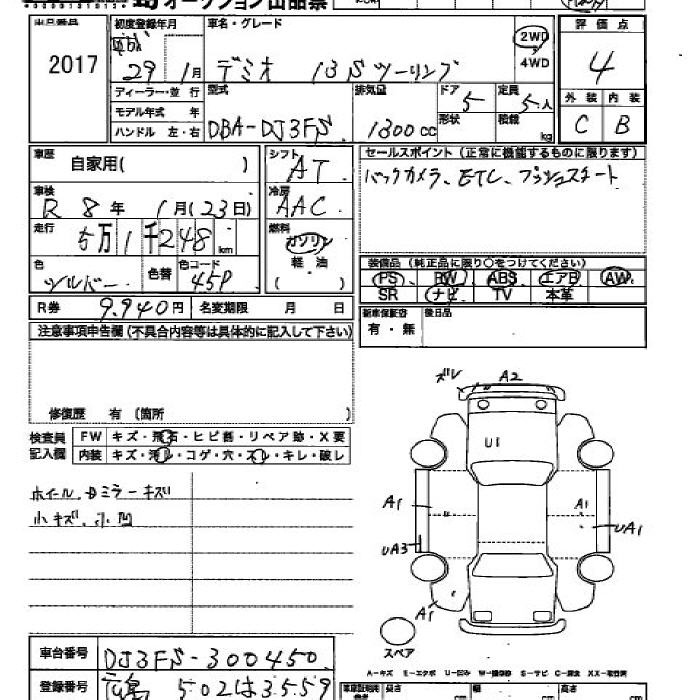 オークション出品票
出品番号 初度登録年月 車名・グレード 評価点
2017 29年1月 デミオ 13Sツーリング 2WD・4WD 4
ディーラー・並行 型式 排気量 ドア 定員 外装 内装
モデル年式 年 DBA-DJ3FS 1300cc 5 5人 C B
ハンドル 左・右 形状 積載 kg
車歴 自家用( ) シフト AT セールスポイント(正常に機能するものに限ります)
車検 R8年1月(23日) 冷房 AAC バックカメラ、ETC、プッシュスタート
走行 5万1千248km 燃料 ガソリン・軽油( )
色 シルバー 色替 色コード 45P 装備品(純正品に限り○をつけてください)
PS PW ABS エアB AW
SR ナビ TV 本革
R券 9,940円 名変期限 月 日 新車保証書 有・無 後日品
注意事項申告欄(不具合内容等は具体的に記入して下さい)
修復歴 有(箇所 )
検査員 FW キズ・飛石・ヒビ割・リペア跡・X要
記入欄 内装 キズ・汚レ・コゲ・穴・スレ・キレ・破レ
ホイール、ドミラーキズ
小キズ、小凹
ズレ A2
U1
A1 A1
UA1
UA3
A1
スペア
A・・キズ E・・エクボ U・・凹み S・・サビ
車台番号 DJ3FS-300450
登録番号 502は3559
長さ cm 幅 cm 高さ cm